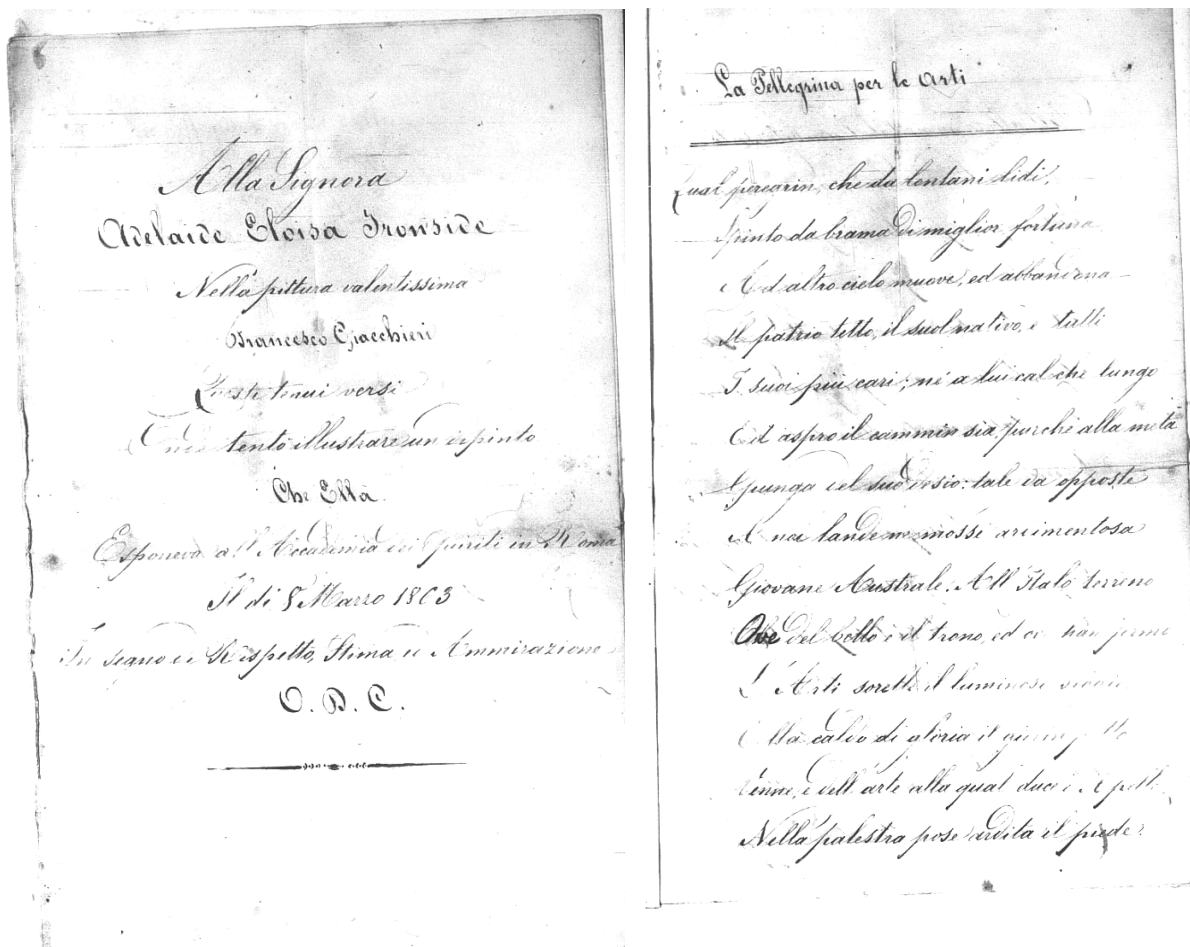 Alla Signora
Adelaide Eloisa Ironside
Nella pittura valentissima
Francesco Giacchieri
Questi tenui versi
Onde tentò illustrare un dipinto
Che Ella
Esponeva all'Accademia dei Quiriti in Roma
Il dì 8 Marzo 1863
In segno di Rispetto, Stima ed Ammirazione
O. D. C.
La Pellegrina per le Arti
Qual peregrin, che da lontani lidi,
Spinto da brama di miglior fortuna
Ad altro cielo muove, ed abbandona
Il patrio tetto, il suol nativo, e tutti
I suoi più cari; nè a lui cal che lungo
Ed aspro il cammin sia, purchè alla meta
Giunga del suo desio: tale da opposte
A noi lande mosse ardimentosa
Giovane Australe. All'Italo terreno
Ove del bello è il trono, ed
L'Arti sorelle il luminoso seggio
Ella calda di gloria il
Venne, e dell'arte alla qual duce è Apelle
Nella palestra pose ardita il piede.